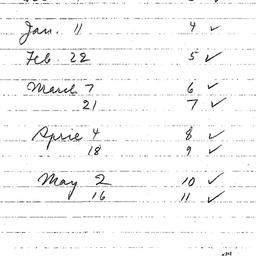 Jan. 11 4 ✓
Feb 22 5 ✓
March 7 6 ✓
21 7 ✓
April 4 8 ✓
18 9 ✓
May 2 10 ✓
16 11 ✓